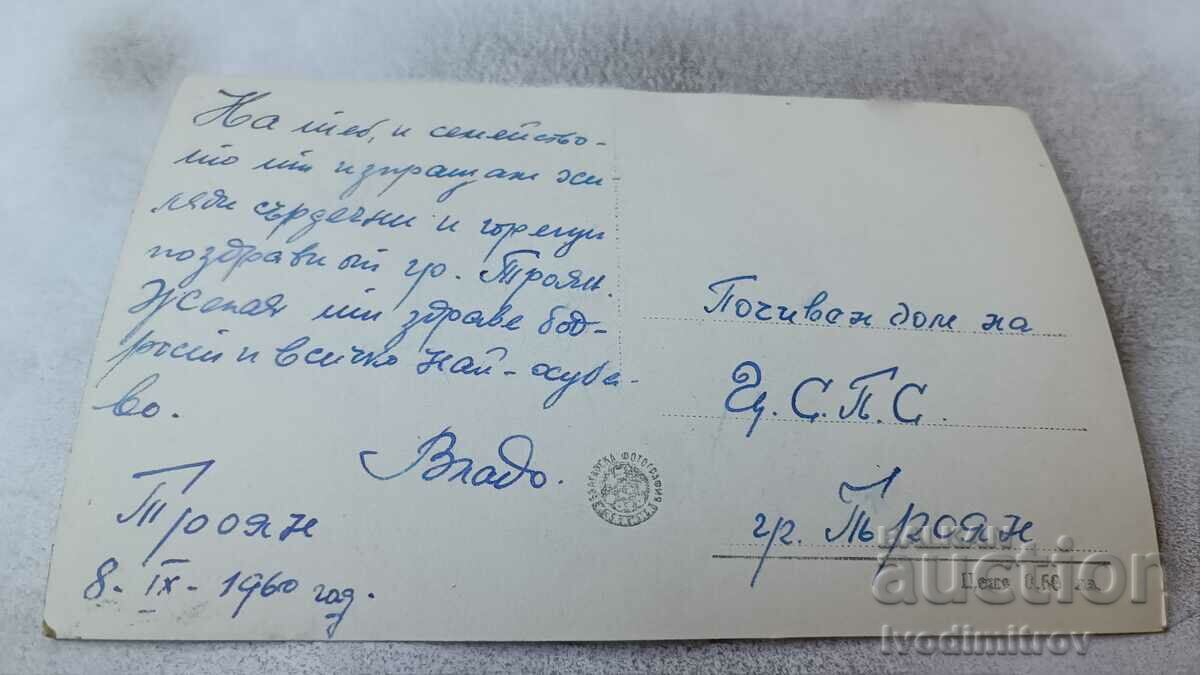 На теб, и семейство-
то ти изпращам хи
ляди сърдечни и горещи
поздрави от гр. Троян.
Желая ти здраве бод-
рост и всичко най-хуба-
во.
Владо.
Троян
8-IX-1960 год.
БЪЛГАРСКА ФОТОГРАФИЯ
Почивен дом на
Ц.С.П.С.
гр. Троян
Цена 0.50 лв.
BALKAN
auction
Ivodimitrov